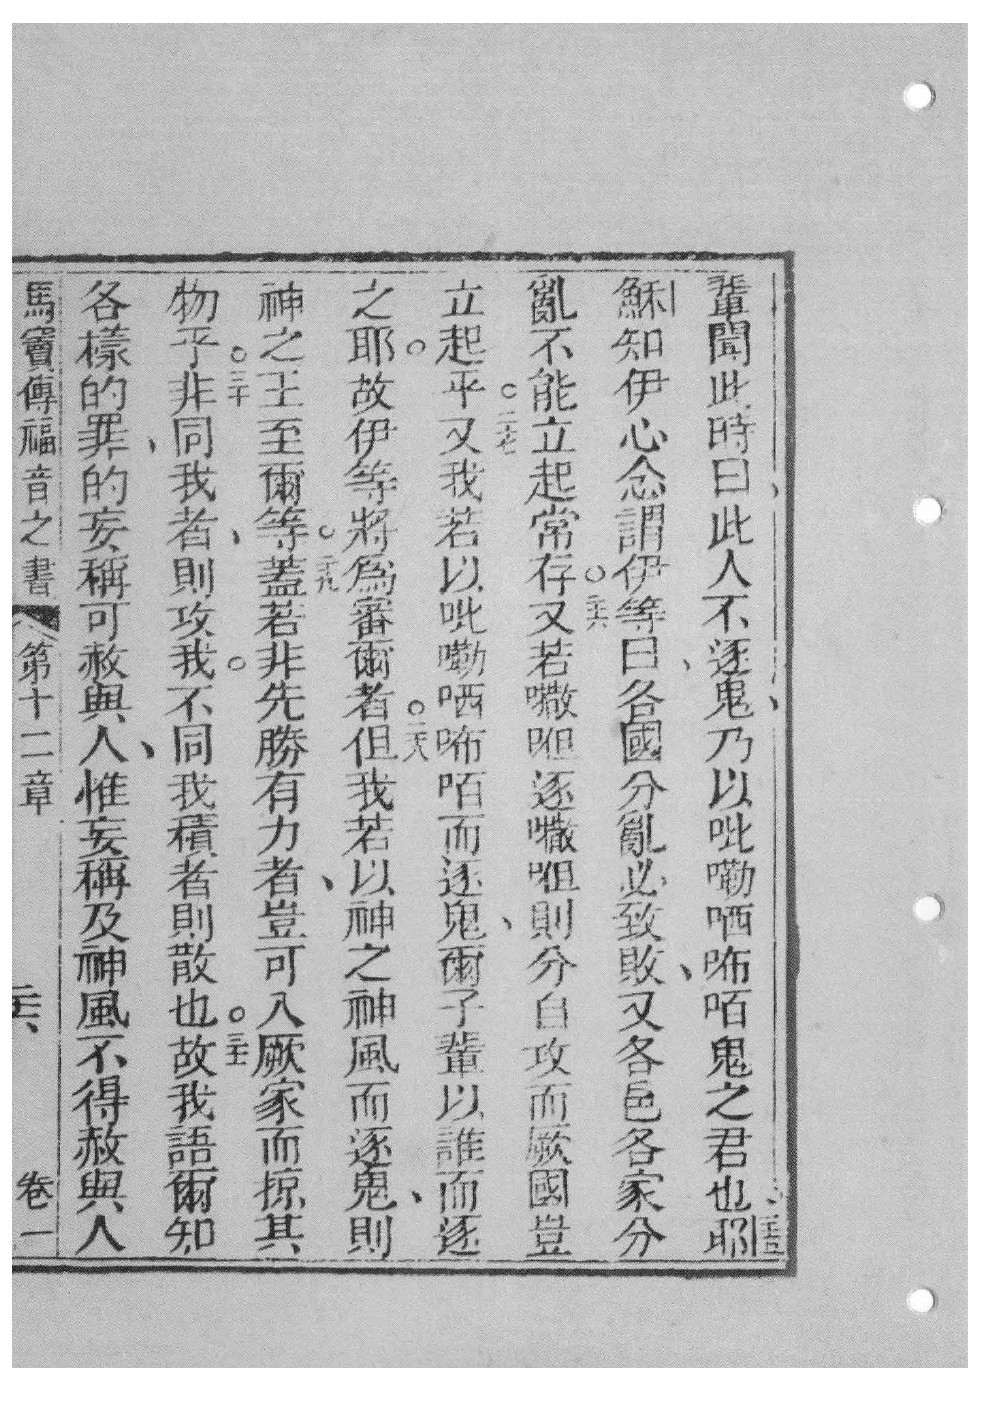 輩聞此時曰此人不逐鬼乃以吡嘞哂咘咟鬼之君也二十五耶
穌知伊心念謂伊等曰各國分亂必致敗又各邑各家分
亂不能立起常存二十六又若嗷咀逐嗷咀則分自攻而厥國豈
立起乎二十七又我若以吡嘞哂咘咟而逐鬼爾子輩以誰而逐
之耶故伊等將為審爾者二十八但我若以神之神風而逐鬼則
神之王至爾等二十九蓋若非先勝有力者豈可入厥家而掠其
物乎三十非同我者則攻我不同我積者則散也三十一故我語爾知
各樣的罪的妄稱可赦與人惟妄稱及神風不得赦與人
馬竇傳福音之書 第十二章 卷一